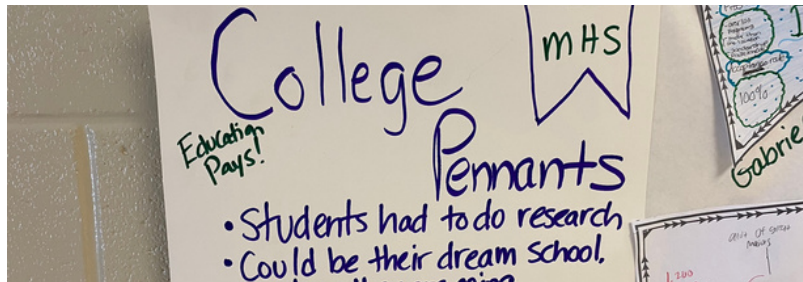 College
MHS
Education
Pays!
Pennants
• Students had to do research
• Could be their dream school,
100%
Gabrie
1,200